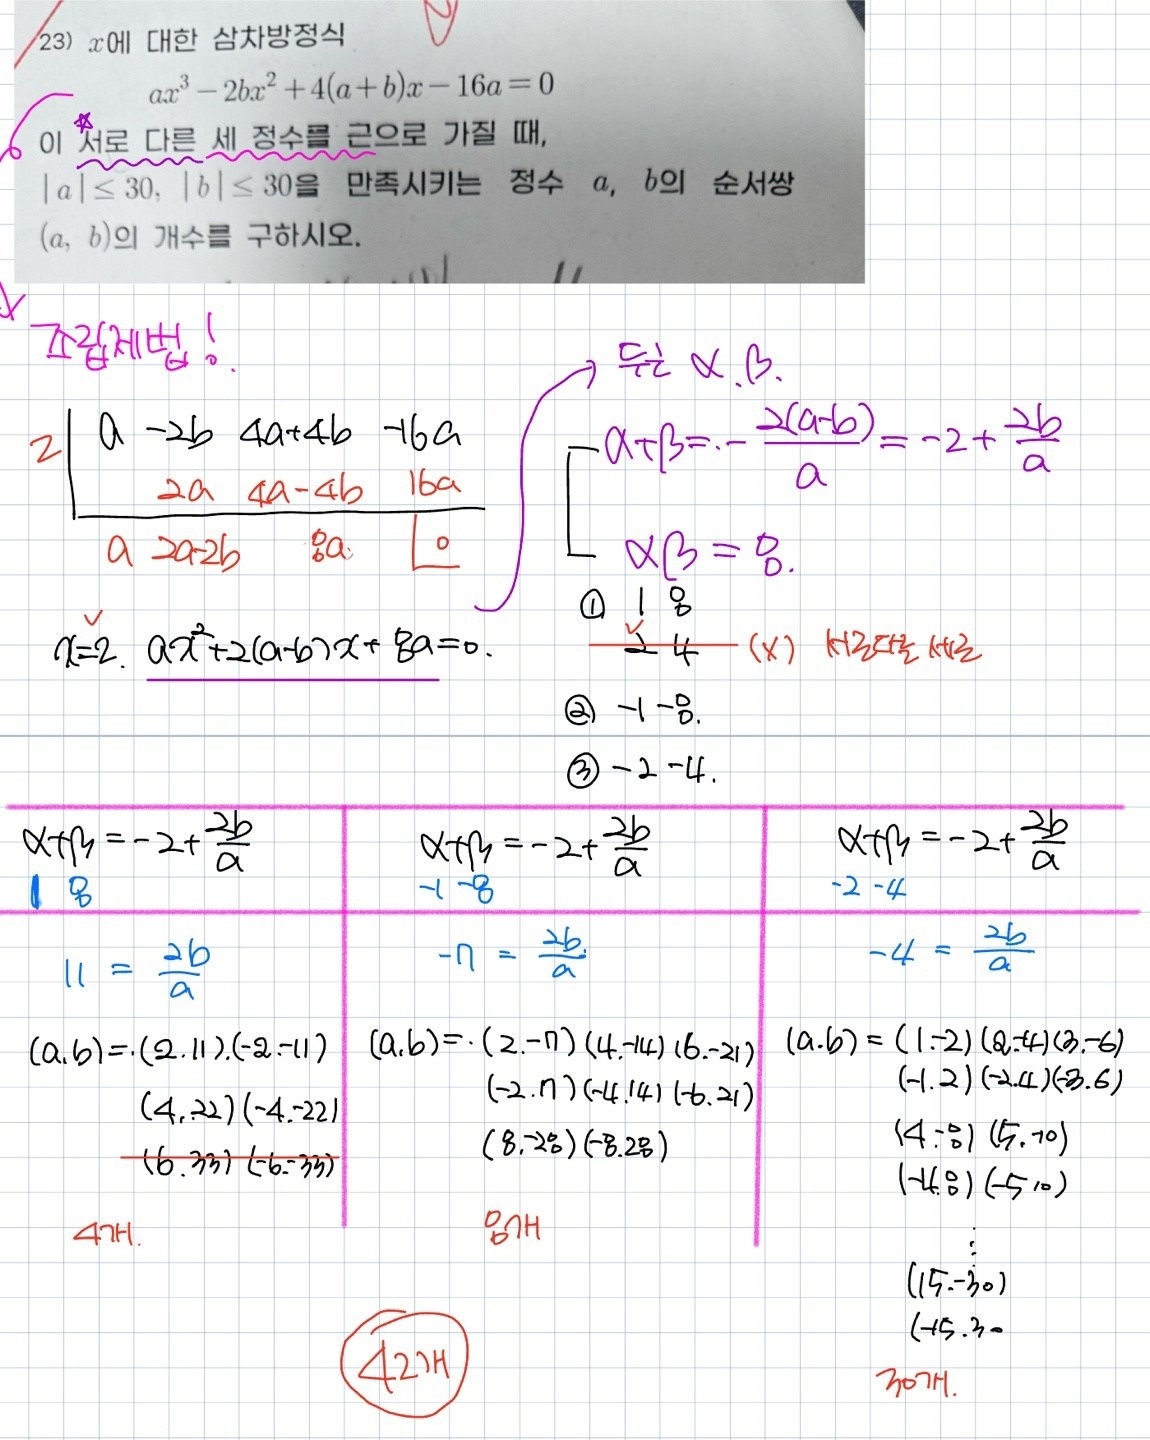 23) x에 대한 삼차방정식
ax³ − 2bx² + 4(a+b)x − 16a = 0
이 서로 다른 세 정수를 근으로 가질 때,
|a| ≤ 30, |b| ≤ 30을 만족시키는 정수 a, b의 순서쌍
(a, b)의 개수를 구하시오.
조립제법!
2 a -2b 4a+4b -16a
2a 4a-4b 16a
a 2a-2b 8a 0
x=2. ax²+2(a-b)x+8a=0.
두근 α.β.
α+β=-2(a-b)/a=-2+2b/a
αβ=8.
① 1 8
2 4 (x) 서로다른 세근
② -1 -8.
③ -2 -4.
α+β=-2+2b/a
1 8
11 = 2b/a
(a.b)=(2.11).(-2.-11)
(4.22)(-4.-22)
(6.33)(-6.-33)
4개.
α+β=-2+2b/a
-1 -8
-7 = 2b/a
(a.b)=(2.-7)(4.-14)(6.-21)
(-2.7)(-4.14)(-6.21)
(8.-28)(-8.28)
8개
α+β=-2+2b/a
-2 -4
-4 = 2b/a
(a.b)=(1.-2)(2.-4)(3.-6)
(-1.2)(-2.4)(-3.6)
(4.-8)(5.-10)
(-4.8)(-5.10)
⋮
(15.-30)
(-15.30
30개.
42개